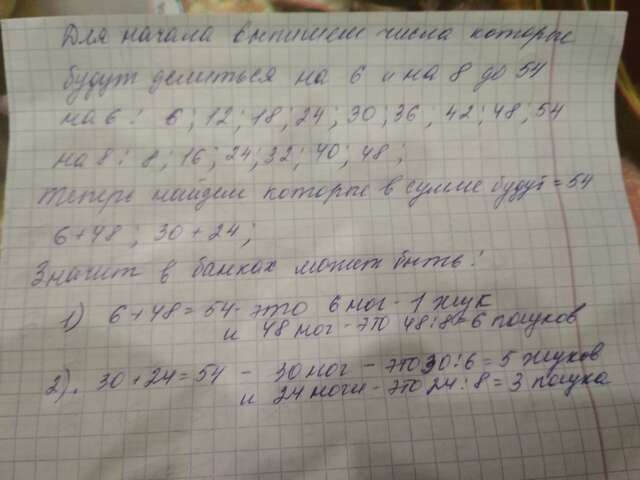 Для начала выпишем числа которые
будут делиться на 6 и на 8 до 54
на 6: 6; 12; 18; 24; 30; 36, 42; 48; 54
на 8: 8; 16; 24; 32; 40; 48;
Теперь найдем которые в сумме будут = 54
6+48; 30+24;
Значит в банках может быть:
1) 6+48=54 - это 6 ног - 1 жук
и 48 ног - это 48:8=6 пауков
2). 30+24=54 - 30 ног - это 30:6=5 жуков
и 24 ноги - это 24:8=3 паука